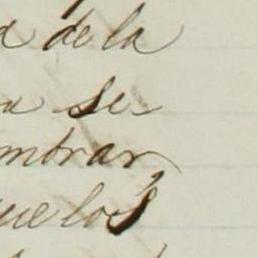 de la
se
mbrar
que los